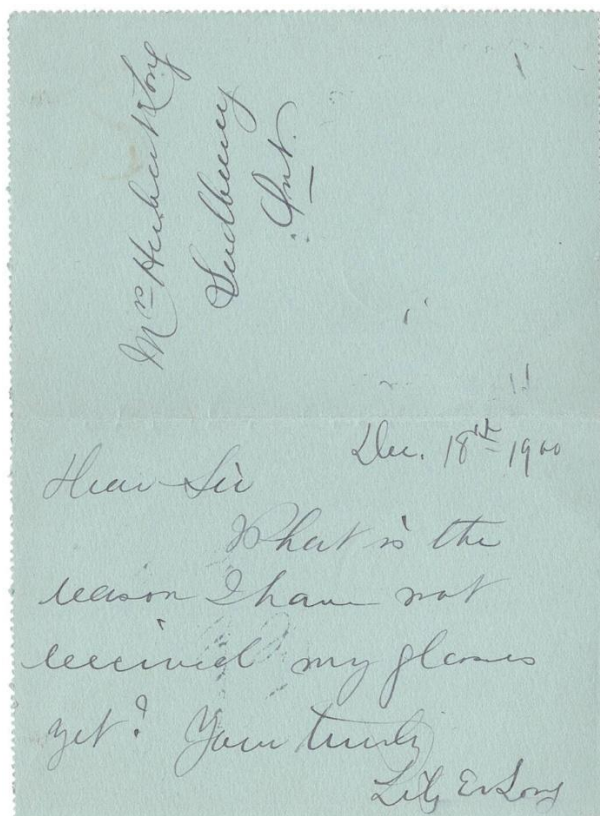 Mrs Hubert Long
Sudbury
Ont.
Dec. 18th 1900
Dear Sir
What is the
reason I have not
received my glasses
yet? Yours truly
Lily E Long